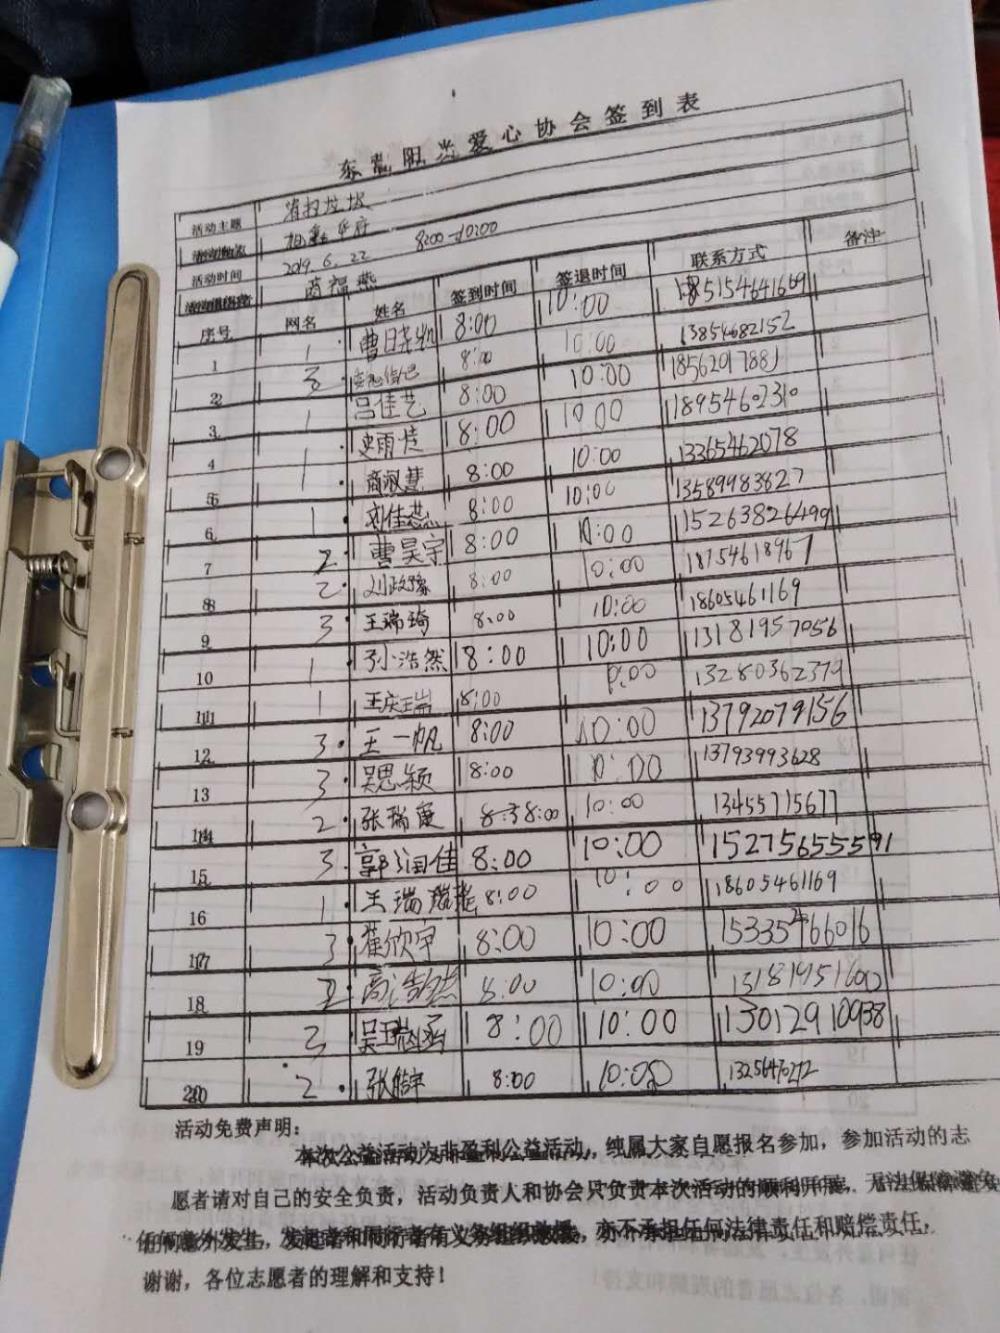 东营阳光爱心协会签到表
活动主题 清扫垃圾
活动地点 府
活动时间 2019.6.22 8:00-10:00
活动负责人 福燕
序号 网名 姓名 签到时间 签退时间 联系方式 备注
1 1 曹日 8:00 10:00 18515464166
2 3 8:00 10:00 13854682152
3 1 吕佳艺 8:00 10:00 1856201788
4 1 史雨佳 8:00 10:00 18954602310
5 1 商淑慧 8:00 10:00 13365462078
6 1 刘佳燕 8:00 10:00 13589983827
7 2 曹昊宇 8:00 10:00 15263826499
8 2 刘政 8:00 10:00 18754618967
9 3 王瑞琦 8:00 10:00 18605461169
10 1 孙浩然 8:00 10:00 13181957056
11 1 王庆瑞 8:00 :00 13280362379
12 3 王一帆 8:00 10:00 13792079156
13 3 吴思颖 8:00 10:00 13793993628
14 2 张瑞 8:00 10:00 13455715677
15 3 郭润佳 8:00 10:00 15275655591
16 1 王瑞 8:00 10:00 18605461169
17 3 崔欣宇 8:00 10:00 15335466016
18 2 高浩杰 8:00 10:00
19 3 吴瑞涵 8:00 10:00 13012910938
20 2 张皓宇 8:00 10:00
活动免费声明：
本次公益活动为非盈利公益活动，纯属大家自愿报名参加，参加活动的志
愿者请对自己的安全负责，活动负责人和协会只负责本次活动的顺利开展，无法保障避免
任何意外发生，发起者和同行者有义务组织救援，亦不承担任何法律责任和赔偿责任，
谢谢，各位志愿者的理解和支持！